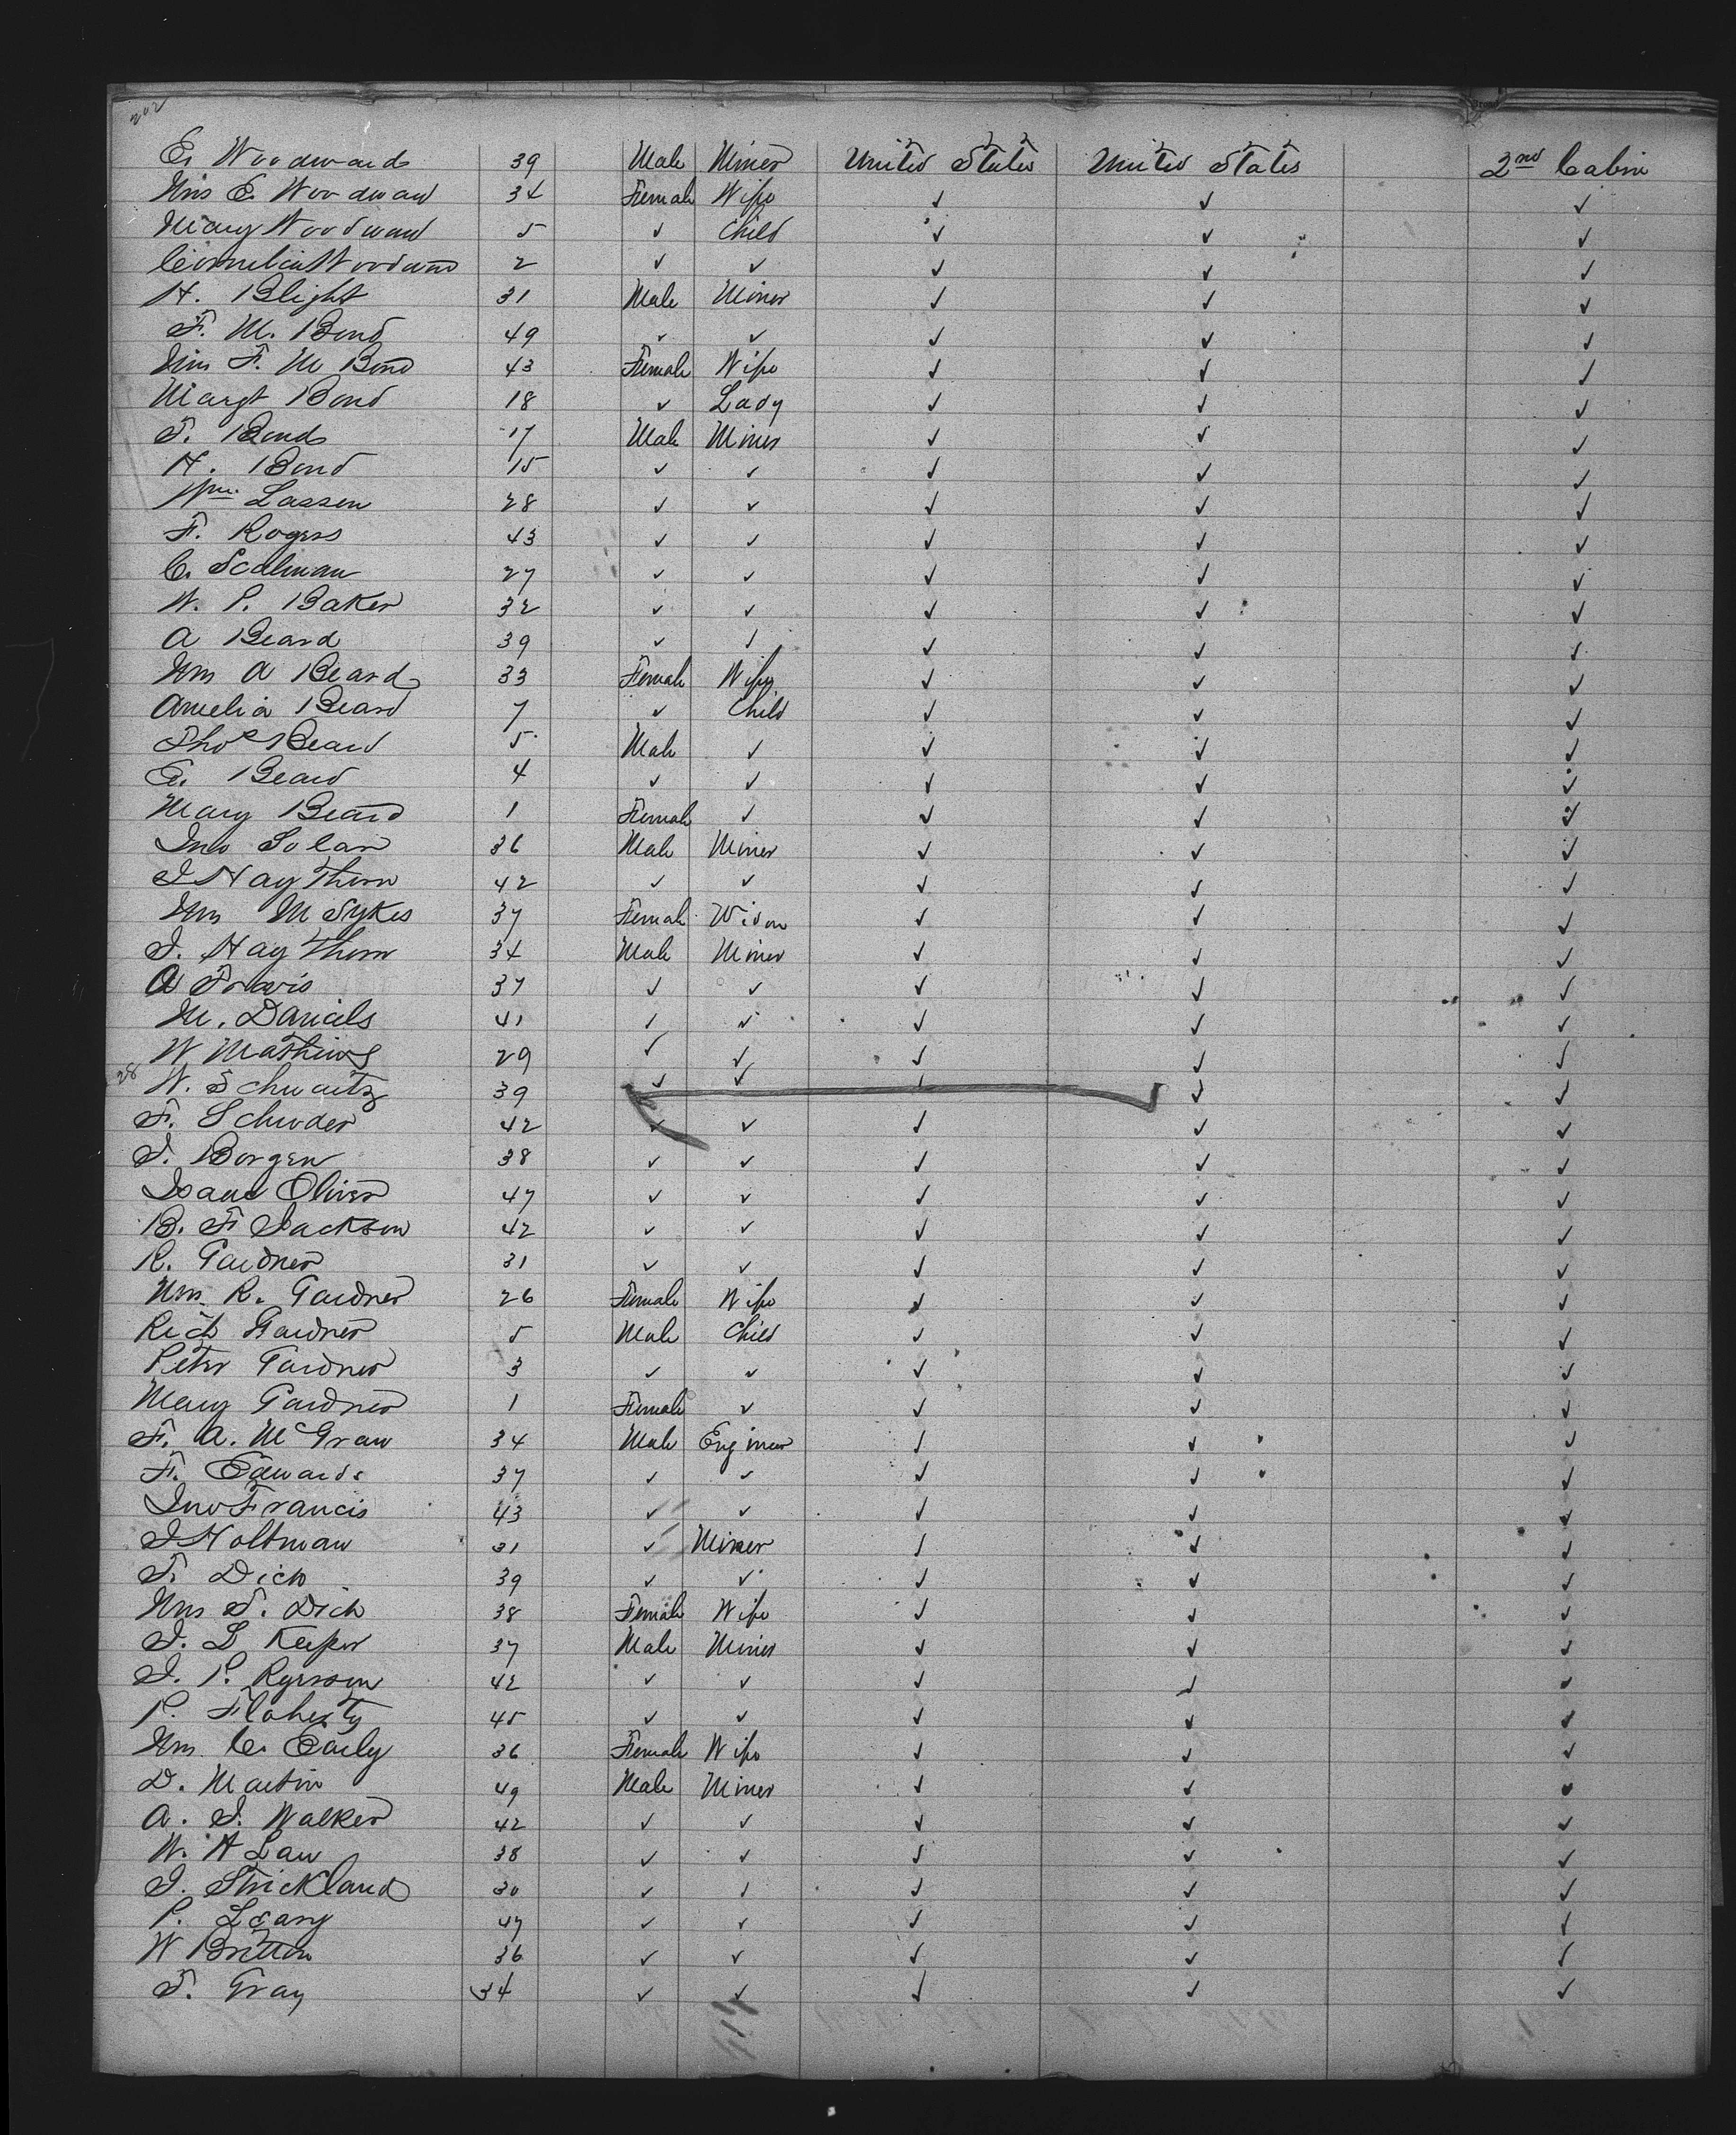 202
E. Woodward 39 Male Miner United States United States 2nd Cabin
Mrs E. Woodward 34 Female Wife ✓ ✓ ✓
Mary Woodward 5 ✓ Child ✓ ✓ ✓
Cornelia Woodward 2 ✓ ✓ ✓ ✓ ✓
H. Blight 31 Male Miner ✓ ✓ ✓
F. M. Bond 49 ✓ ✓ ✓ ✓ ✓
Mrs F. M Bond 43 Female Wife ✓ ✓ ✓
Margt Bond 18 ✓ Lady ✓ ✓ ✓
F. Bond 17 Male Miner ✓ ✓ ✓
H. Bond 15 ✓ ✓ ✓ ✓ ✓
Wm. Lassen 28 ✓ ✓ ✓ ✓ ✓
F. Rogers 43 ✓ ✓ ✓ ✓ ✓
C. Scalman 27 ✓ ✓ ✓ ✓ ✓
W. P. Baker 32 ✓ ✓ ✓ ✓ ✓
A Beard 39 ✓ ✓ ✓ ✓ ✓
Mrs A Beard 33 Female Wife ✓ ✓ ✓
Amelia Beard 7 ✓ Child ✓ ✓ ✓
Thos Beard 5 Male ✓ ✓ ✓ ✓
E. Beard 4 ✓ ✓ ✓ ✓ ✓
Mary Beard 1 Female ✓ ✓ ✓ ✓
Jno Solan 36 Male Miner ✓ ✓ ✓
J Haythorn 42 ✓ ✓ ✓ ✓ ✓
Mrs M Sykes 37 Female Widow ✓ ✓ ✓
J. Haythorn 34 Male Miner ✓ ✓ ✓
A Travis 37 ✓ ✓ ✓ ✓ ✓
M. Daniels 41 ✓ ✓ ✓ ✓ ✓
W Mathews 29 ✓ ✓ ✓ ✓ ✓
28 W. Schwartz 39 ✓ ✓ ✓ ✓ ✓
F. Schroder 42 ✓ ✓ ✓ ✓ ✓
J. Borgen 38 ✓ ✓ ✓ ✓ ✓
Isaac Oliver 47 ✓ ✓ ✓ ✓ ✓
B. F Jackson 42 ✓ ✓ ✓ ✓ ✓
R. Gardner 31 ✓ ✓ ✓ ✓ ✓
Mrs. R. Gardner 26 Female Wife ✓ ✓ ✓
Rich Gardner 5 Male Child ✓ ✓ ✓
Peter Gardner 3 ✓ ✓ ✓ ✓ ✓
Mary Gardner 1 Female ✓ ✓ ✓ ✓
F. A. McGraw 34 Male Engineer ✓ ✓ ✓
F. Edwards 37 ✓ ✓ ✓ ✓ ✓
Jno Francis 43 ✓ ✓ ✓ ✓ ✓
J Holtman 31 ✓ Miner ✓ ✓ ✓
F. Dick 39 ✓ ✓ ✓ ✓ ✓
Mrs F. Dick 38 Female Wife ✓ ✓ ✓
J. L Keeper 37 Male Miner ✓ ✓ ✓
J. P. Ryerson 42 ✓ ✓ ✓ ✓ ✓
P. Flaherty 45 ✓ ✓ ✓ ✓ ✓
Mrs. C. Early 36 Female Wife ✓ ✓ ✓
D. Martin 49 Male Miner ✓ ✓ ✓
A. J. Walker 42 ✓ ✓ ✓ ✓ ✓
W. A Law 38 ✓ ✓ ✓ ✓ ✓
J. Strickland 30 ✓ ✓ ✓ ✓ ✓
P. Leary 47 ✓ ✓ ✓ ✓ ✓
W Britton 36 ✓ ✓ ✓ ✓ ✓
F. Gray 34 ✓ ✓ ✓ ✓ ✓